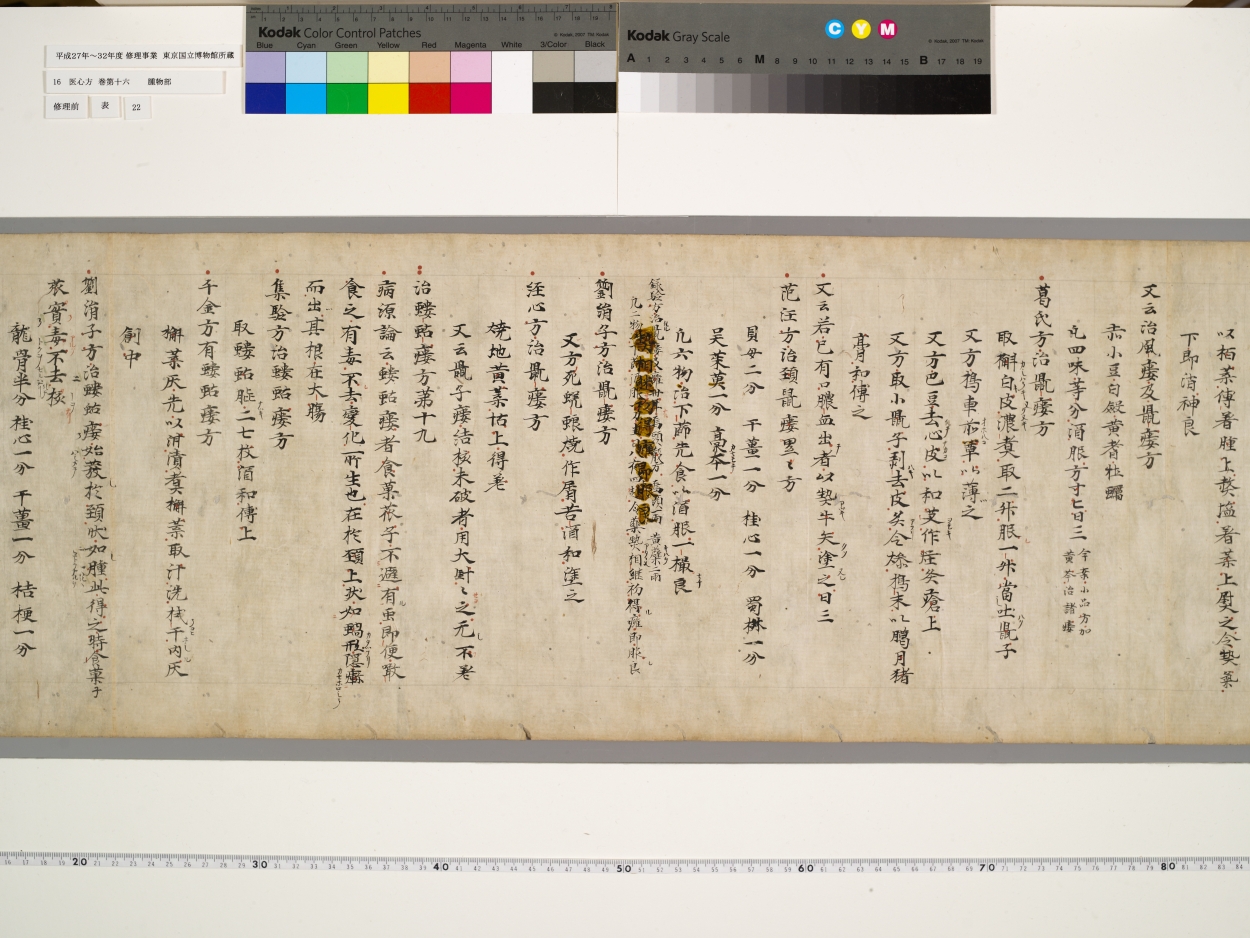 平成27年～32年度 修理事業 東京国立博物館所蔵
16 医心方 巻第十六 腫物部
修理前 表 22
Kodak Color Control Patches
Blue Cyan Green Yellow Red Magenta White 3/Color Black
Kodak Gray Scale
C Y M
A 1 2 3 4 5 6 M 8 9 10 11 12 13 14 15 B 17 18 19
以柏葉傅著腫上熬塩著葉上熨之令熱薬
下即消神良
又云治風瘻及鼠瘻方
赤小豆白斂黄耆牡蠣
凡四味等分酒服方寸匕日三
葛氏方治鼠瘻方
取槲白皮濃煮取二升服一升當吐鼠子
又方搗車前草以薄之
又方巴豆去心皮以和艾作炷灸瘡上
又方取小鼠子剥去皮炙令燥搗末以臘月猪
膏和傅之
又云若已有口膿血出者以熱牛矢塗之日三
范汪方治頚鼠瘻累々方
貝母二分 干薑一分 桂心一分 蜀椒一分
吴茱萸一分 藁本一分
凡六物治下篩先食以酒服一撮良
劉涓子方治鼠瘻方
又方死蛻蜋焼作屑苦酒和塗之
経心方治鼠瘻方
焼地黄葉怗上得差
又云鼠子瘻結核未破者用大針々之无不差
治螻蛄瘻方第十九
病源論云螻蛄瘻者食菓蓏子不避有虫即便噉
食之有毒不去變化所生也在於頚上状如蝸形隠𤺋
而出其根在大膓
集験方治螻蛄瘻方
取螻蛄脳二七枚酒和傅上
千金方有螻蛄瘻方
槲葉灰先以泔清煮槲葉取汁洗拭干内灰
創中
劉涓子方治螻蛄瘻始發於頚状如腫此得之時食菓子
蓏實毒不去核
龍骨半分 桂心一分 干薑一分 桔梗一分
20 30 40 50 60 70 80